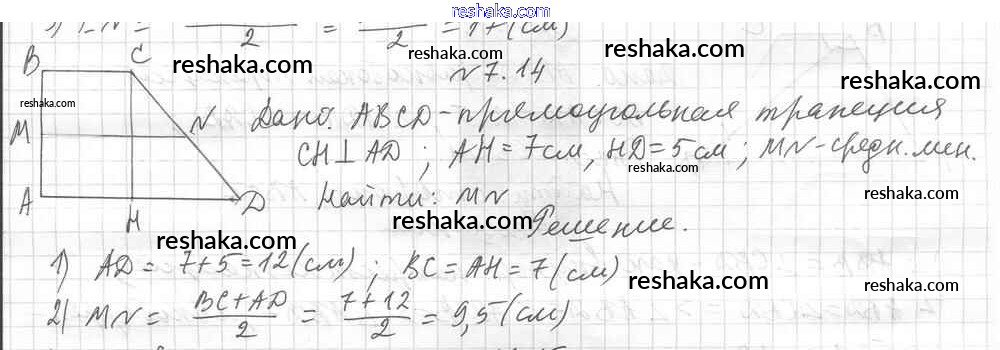 reshaka.com
2 = 2 = 17 (см)
reshaka.com
reshaka.com
reshaka.com
B C
N 7.14
reshaka.com
M N
Дано: ABCD-прямоугольная трапеция
CH ⊥ AD; AH = 7 см, HD = 5 см; MN - средн. лин.
reshaka.com
A H D
Найти: MN
reshaka.com
Решение.
reshaka.com
reshaka.com
1) AD = 7+5 = 12 (см); BC = AH = 7 (см)
reshaka.com
2) MN = BC+AD / 2 = 7+12 / 2 = 9,5 (см)
reshaka.com
reshaka.com